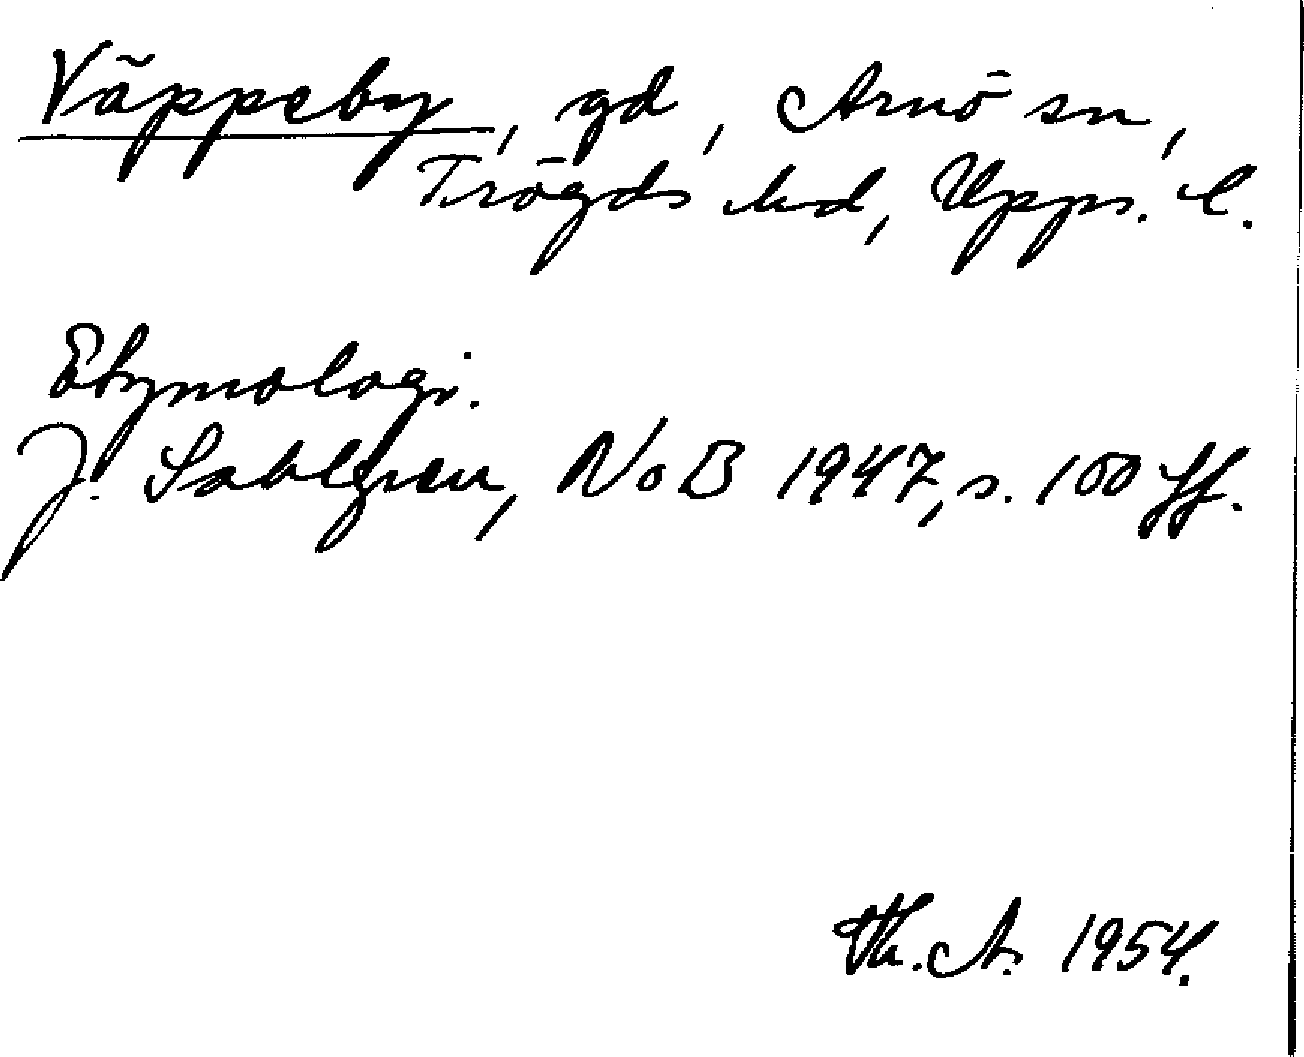 Väppeby, gd, Arnö sn,
Trögds hd, Upps. l.
Etymologi.
J. Sahlgren, NoB 1947, s. 100 ff.
Th. A. 1954.